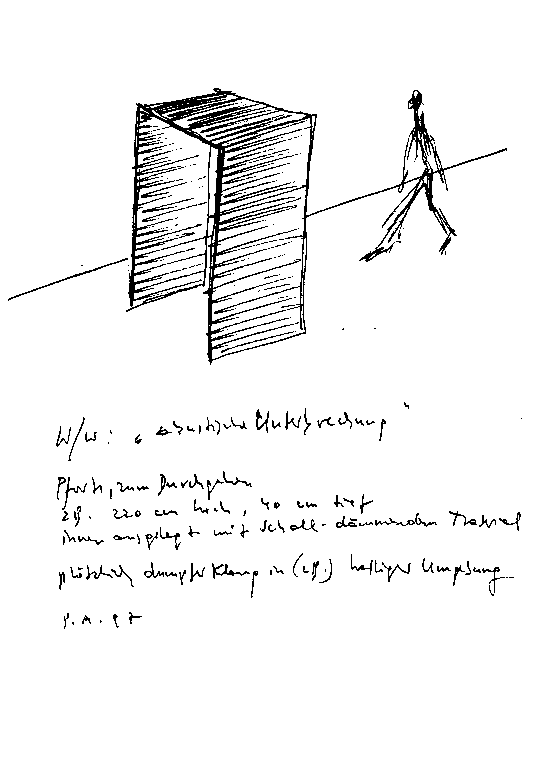 W/W: „akustische Unterbrechung"
Pforte, zum Durchgehen
z.B. 220 cm hoch, 40 cm tief
innen ausgelegt mit Schall-dämmendem Material
plötzlich dumpfer Klang in (z.B.) halliger Umgebung
P.A. 97